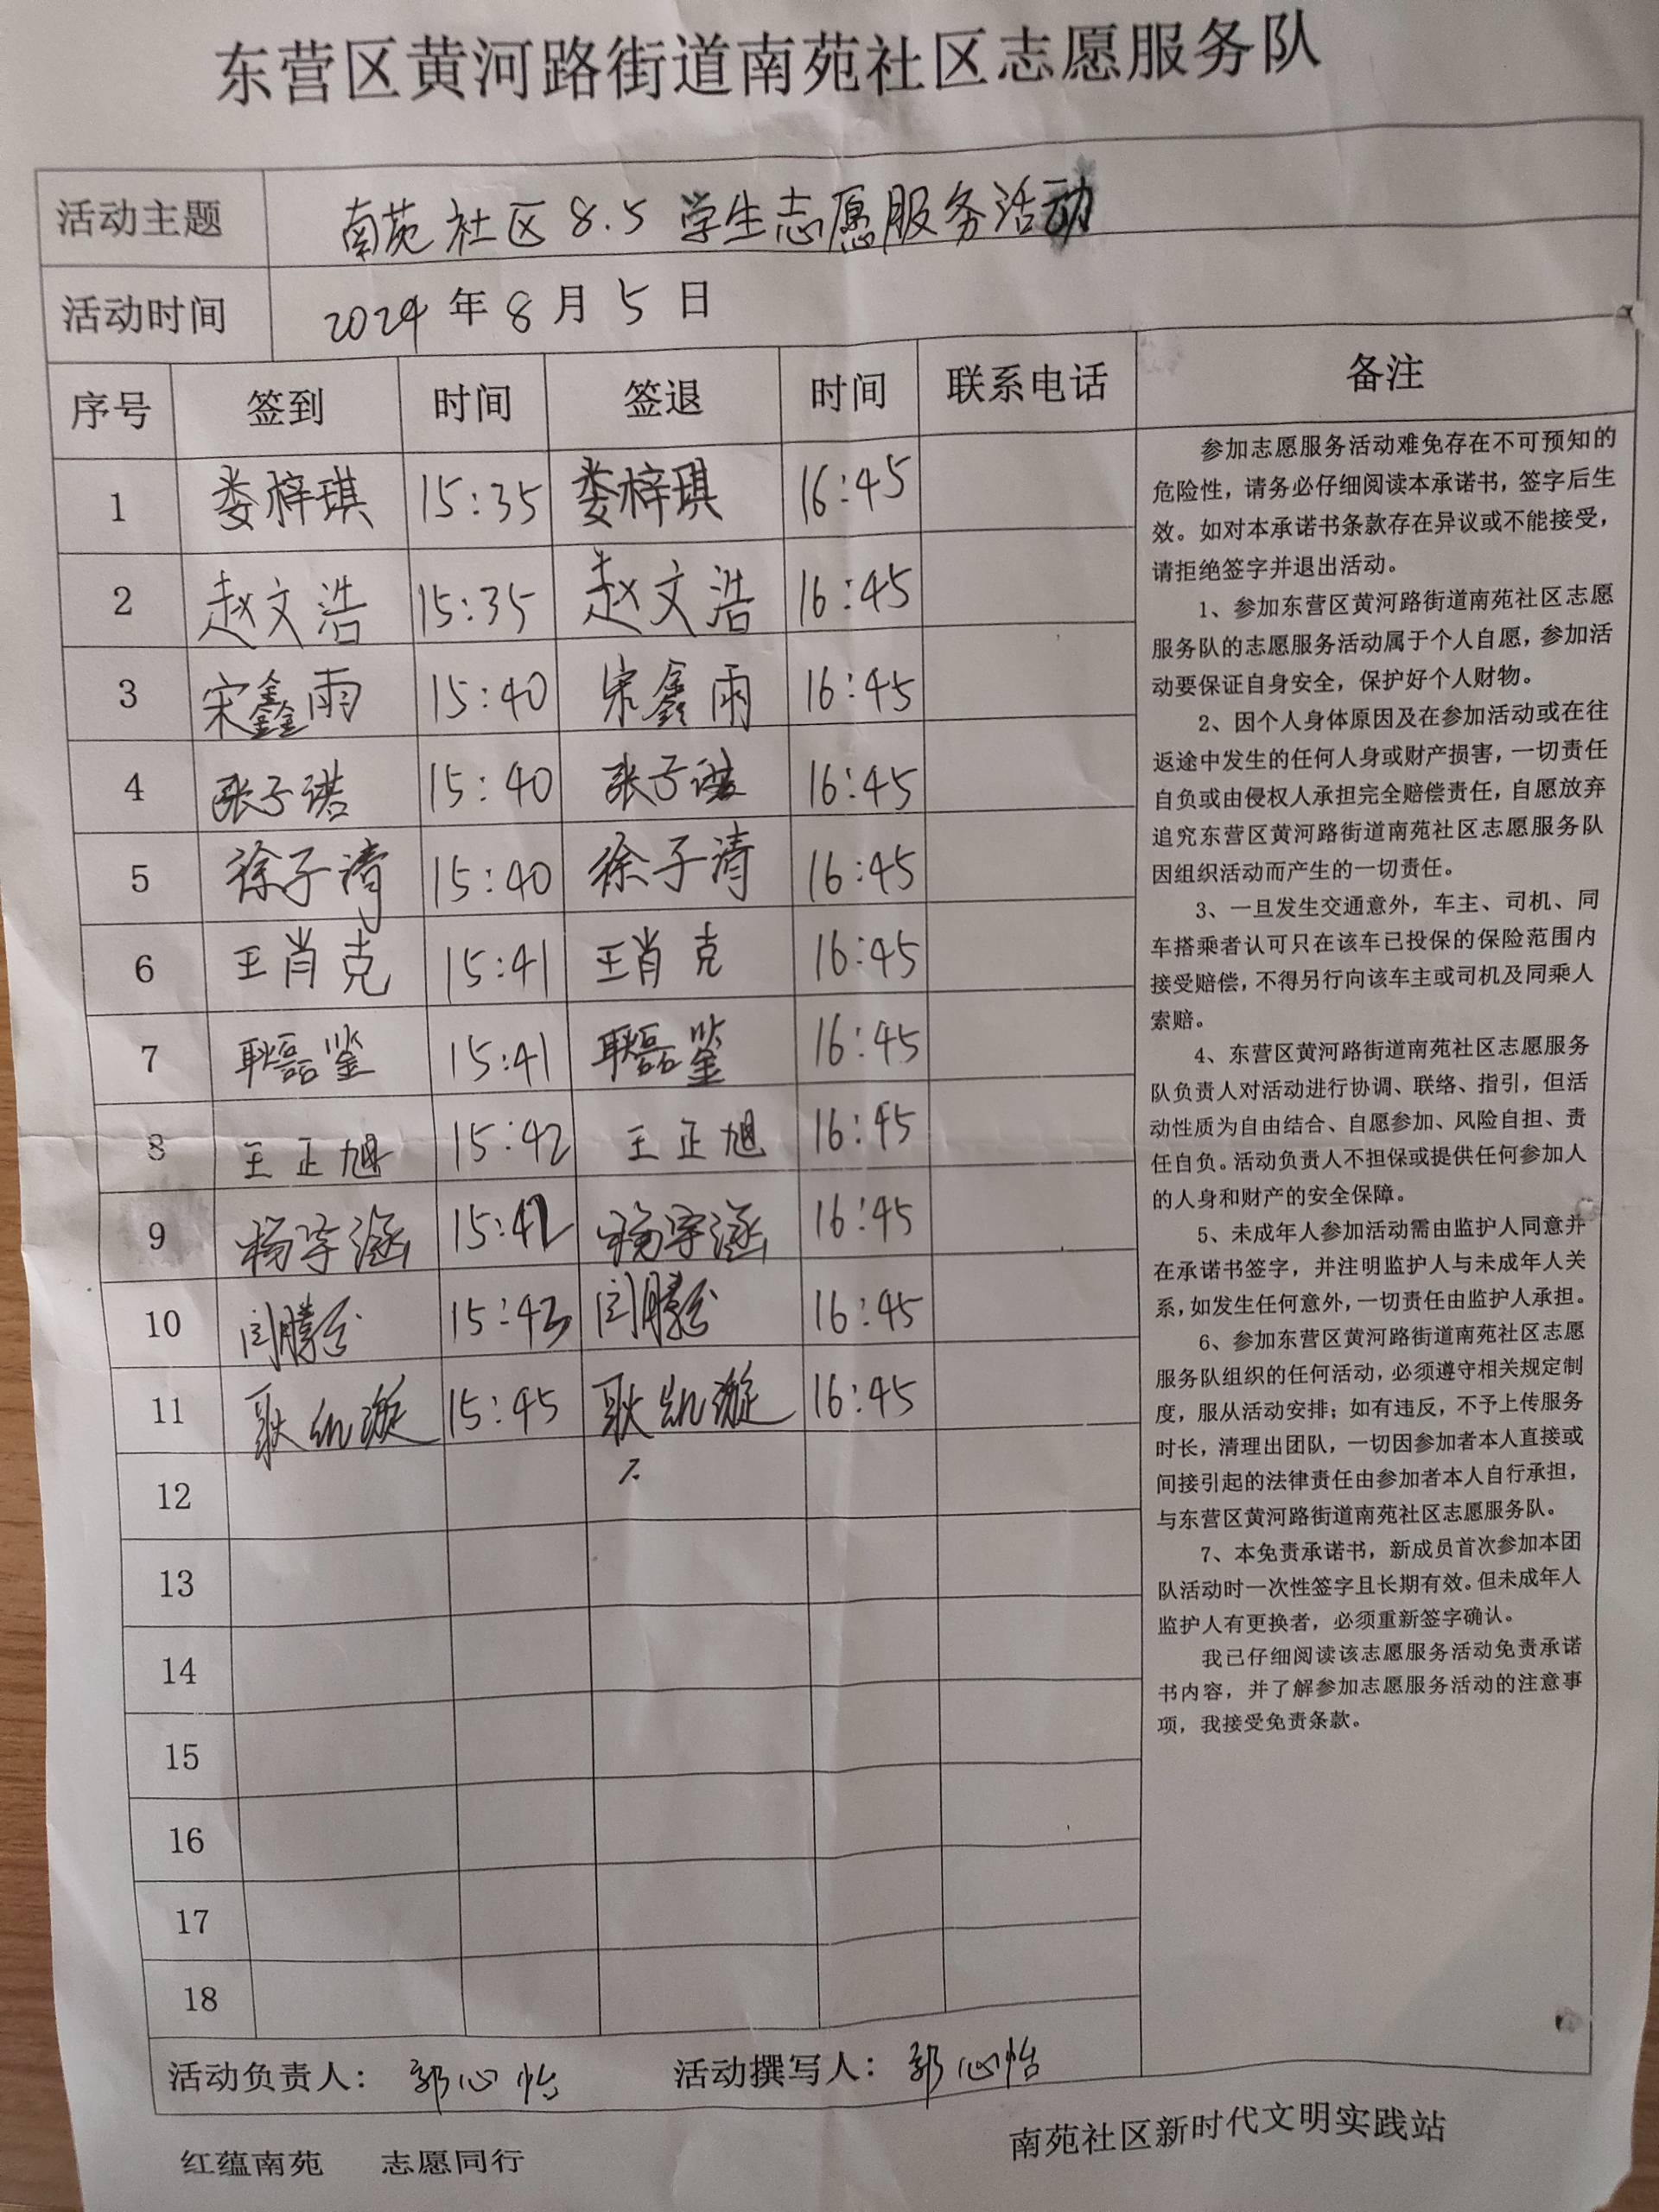 东营区黄河路街道南苑社区志愿服务队
活动主题 南苑社区8.5学生志愿服务活动
活动时间 2024年8月5日
序号 签到 时间 签退 时间 联系电话 备注
1 娄梓琪 15:35 娄梓琪 16:45
2 赵文浩 15:35 赵文浩 16:45
3 宋鑫雨 15:40 宋鑫雨 16:45
4 张子诺 15:40 张子诺 16:45
5 徐子清 15:40 徐子清 16:45
6 王肖克 15:41 王肖克 16:45
7 耿磊鉴 15:41 耿磊鉴 16:45
8 王正旭 15:42 王正旭 16:45
9 杨宇涵 15:42 杨宇涵 16:45
10 闫腾 15:43 闫腾 16:45
11 耿凯漩 15:45 耿凯漩 16:45
12
13
14
15
16
17
18
参加志愿服务活动难免存在不可预知的
危险性，请务必仔细阅读本承诺书，签字后生
效。如对本承诺书条款存在异议或不能接受，
请拒绝签字并退出活动。
1、参加东营区黄河路街道南苑社区志愿
服务队的志愿服务活动属于个人自愿，参加活
动要保证自身安全，保护好个人财物。
2、因个人身体原因及在参加活动或在往
返途中发生的任何人身或财产损害，一切责任
自负或由侵权人承担完全赔偿责任，自愿放弃
追究东营区黄河路街道南苑社区志愿服务队
因组织活动而产生的一切责任。
3、一旦发生交通意外，车主、司机、同
车搭乘者认可只在该车已投保的保险范围内
接受赔偿，不得另行向该车主或司机及同乘人
索赔。
4、东营区黄河路街道南苑社区志愿服务
队负责人对活动进行协调、联络、指引，但活
动性质为自由结合、自愿参加、风险自担、责
任自负。活动负责人不担保或提供任何参加人
的人身和财产的安全保障。
5、未成年人参加活动需由监护人同意并
在承诺书签字，并注明监护人与未成年人关
系，如发生任何意外，一切责任由监护人承担。
6、参加东营区黄河路街道南苑社区志愿
服务队组织的任何活动，必须遵守相关规定制
度，服从活动安排；如有违反，不予上传服务
时长，清理出团队，一切因参加者本人直接或
间接引起的法律责任由参加者本人自行承担，
与东营区黄河路街道南苑社区志愿服务队。
7、本免责承诺书，新成员首次参加本团
队活动时一次性签字且长期有效。但未成年人
监护人有更换者，必须重新签字确认。
我已仔细阅读该志愿服务活动免责承诺
书内容，并了解参加志愿服务活动的注意事
项，我接受免责条款。
活动负责人：郭心怡 活动撰写人：郭心怡
红蕴南苑 志愿同行
南苑社区新时代文明实践站